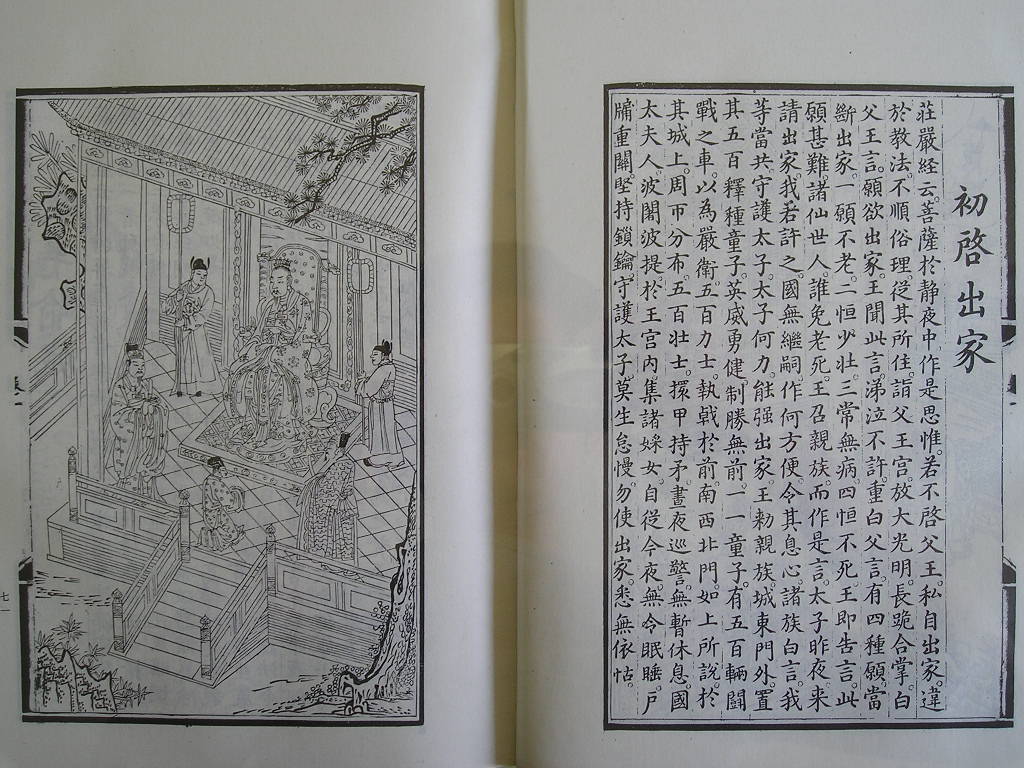 初啓出家
莊嚴経云。菩薩於静夜中。作是思惟。若不啓父王。私自出家。違
於教法。不順俗理。従其所住。詣父王宫。放大光明。長跪合掌。白
父王言。願欲出家。王聞此言。涕泣不許。重白父言。有四種願。當
断出家。一願不老。二恒少壮。三常無病。四恒不死。王即告言。此
願甚難。諸仙世人。誰免老死。王召親族。而作是言。太子昨夜来
請出家。我若許之。國無繼嗣。作何方便。令其息心。諸族白言。我
等當共守護太子。太子何力能强出家。王勅親族。城東門外。置
其五百釋種童子。英威勇健。制勝無前。一一童子。有五百輛闘
戰之車。以為嚴衛。五百力士。執戟於前。南西北門。如上所說。於
其城上。周帀分布五百壮士。擐甲持矛。晝夜巡警。無暫休息。國
太夫人。波闍波提。於王宫内。集諸婇女。自従今夜。無令眠睡。戸
牖重關。堅持鎖鑰。守護太子。莫生怠慢。勿使出家。悉無依怙。
七